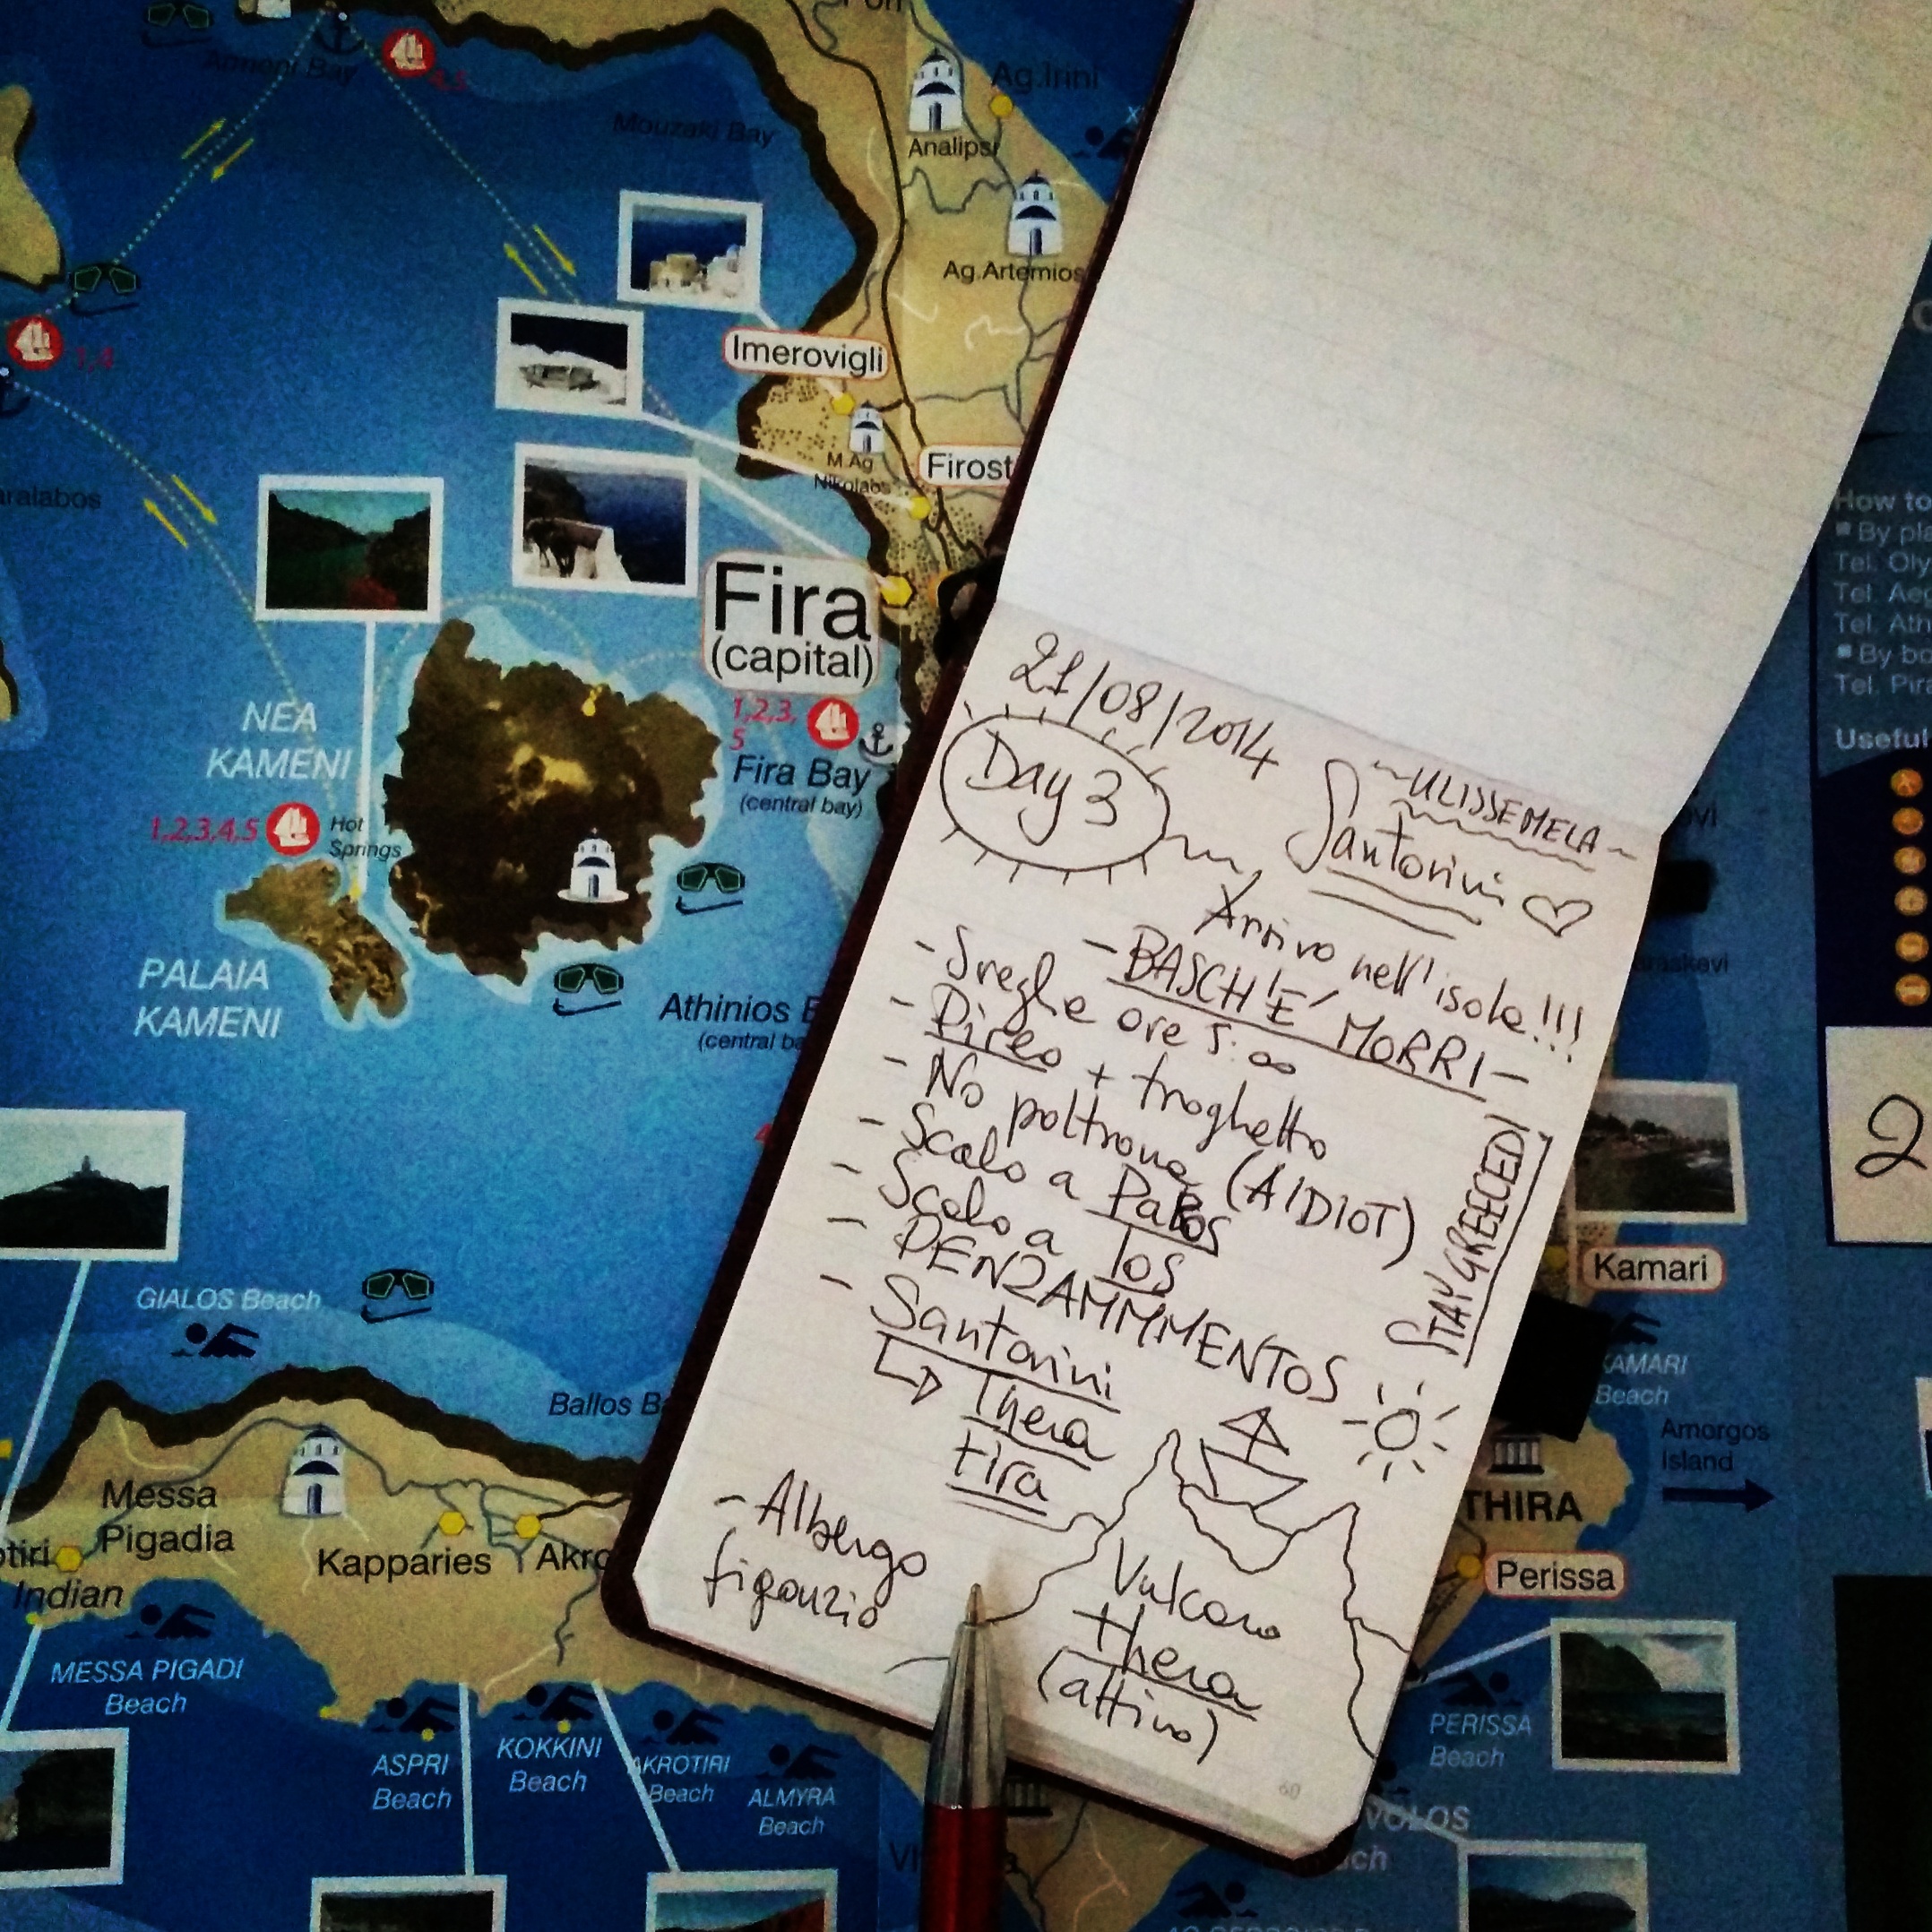 Ag.Irini
Mouzaki Bay
Analipsi
Ag.Artemios
4,5
1,4
Imerovigli
M.Ag
Nikolaos
Firost
Fira
(capital)
NEA
KAMENI
1,2,3,
5
Fira Bay
(central bay)
1,2,3,4,5
Hot
Springs
PALAIA
KAMENI
Athinios B
(central ba
GIALOS Beach
Ballos Ba
Messa
Pigadia
Kapparies
Akro
otiri
Indian
MESSA PIGADI
Beach
ASPRI
Beach
KOKKINI
Beach
AKROTIRI
Beach
ALMYRA
Beach
21/08/2014
Day 3
~ULISSEMELA~
Santorini
Arrivo nell'isola!!!
-BASCH'E' MORRI-
-Sveglia ore 5:00
-Pireo + traghetto
-No poltrona (AIDIOT)
-Scalo a Paros
-Scalo a Ios
-PENZAMMMENTOS
-Santorini
Thera
Fira
STAY GREECED!
-Albergo
figouzio
Vulcano
Thera
(attivo)
60
How to
By pla
Tel. Oly
Tel. Aeg
Tel. Ath
By bo
Tel. Pira
Useful
2
Kamari
KAMARI
Beach
Amorgos
Island
THIRA
Perissa
PERISSA
Beach